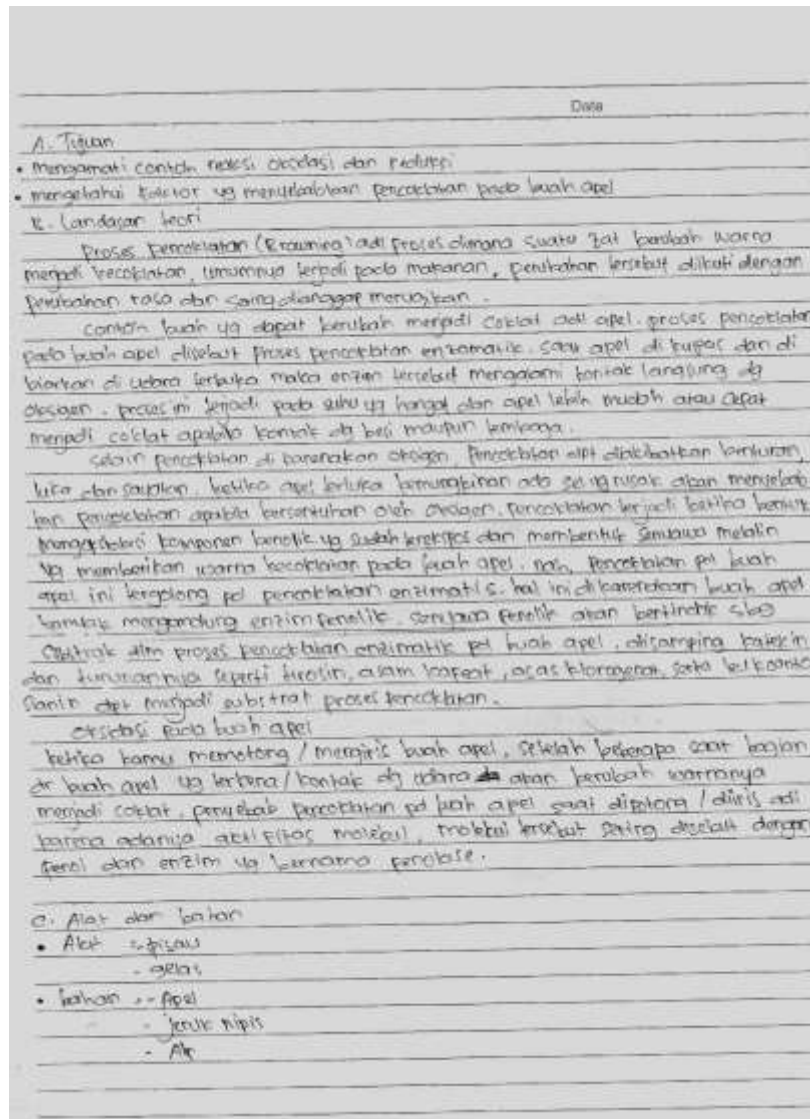 Date
A. Tujuan
• Mengamati contoh reaksi oksidasi dan reduksi
• mengetahui faktor yg menyebabkan pencoklatan pada buah apel
B. Landasan teori
Proses pencoklatan (Browning) adl proses dimana suatu zat berubah warna
menjadi kecoklatan, umumnya terjadi pada makanan, perubahan tersebut diikuti dengan
perubahan rasa dan sering dianggap merugikan.
contoh buah yg dapat berubah menjadi coklat adl apel. proses pencoklatan
pada buah apel disebut proses pencoklatan enzimatik. saat apel di kupas dan di
biarkan di udara terbuka maka enzim tersebut mengalami kontak langsung dg
oksigen. proses ini terjadi pada suhu yg hangat dan apel lebih mudah atau cepat
menjadi coklat apabila kontak dg besi maupun tembaga.
selain pencoklatan di karenakan oksigen, pencoklatan dpt diakibatkan benturan,
luka dan sayatan. ketika apel terluka kemungkinan ada sel yg rusak akan menyebab
kan pencoklatan apabila bersentuhan oleh oksigen. pencoklatan terjadi ketika
mengoksidasi komponen fenolik yg sudah terekspos dan membentuk senyawa melanin
yg memberikan warna kecoklatan pada buah apel. nah, pencoklatan pd buah
apel ini tergolong pd pencoklatan enzimatis. hal ini dikarenakan buah apel
banyak mengandung enzim fenolik. senyawa fenolik akan bertindak sbg
dlm proses pencoklatan enzimatik pd buah apel, disamping katekin
dan turunannya seperti tirosin, asam kafeat, asas klorogenat, serta leukoanto
sianin dpt menjadi substrat proses pencoklatan.
oksidasi pada buah apel
ketika kamu memotong / mengiris buah apel, setelah beberapa saat bagian
dr buah apel yg terkena / kontak dg udara akan berubah warnanya
menjadi coklat. penyebab pencoklatan pd buah apel saat dipotong / diiris adl
karena adanya aktifitas molekul, molekul tersebut sering disebut dengan
fenol dan enzim yg bernama fenolase.
C. Alat dan bahan
• Alat : - pisau
- gelas
• bahan : - Apel
- jeruk nipis
- Air